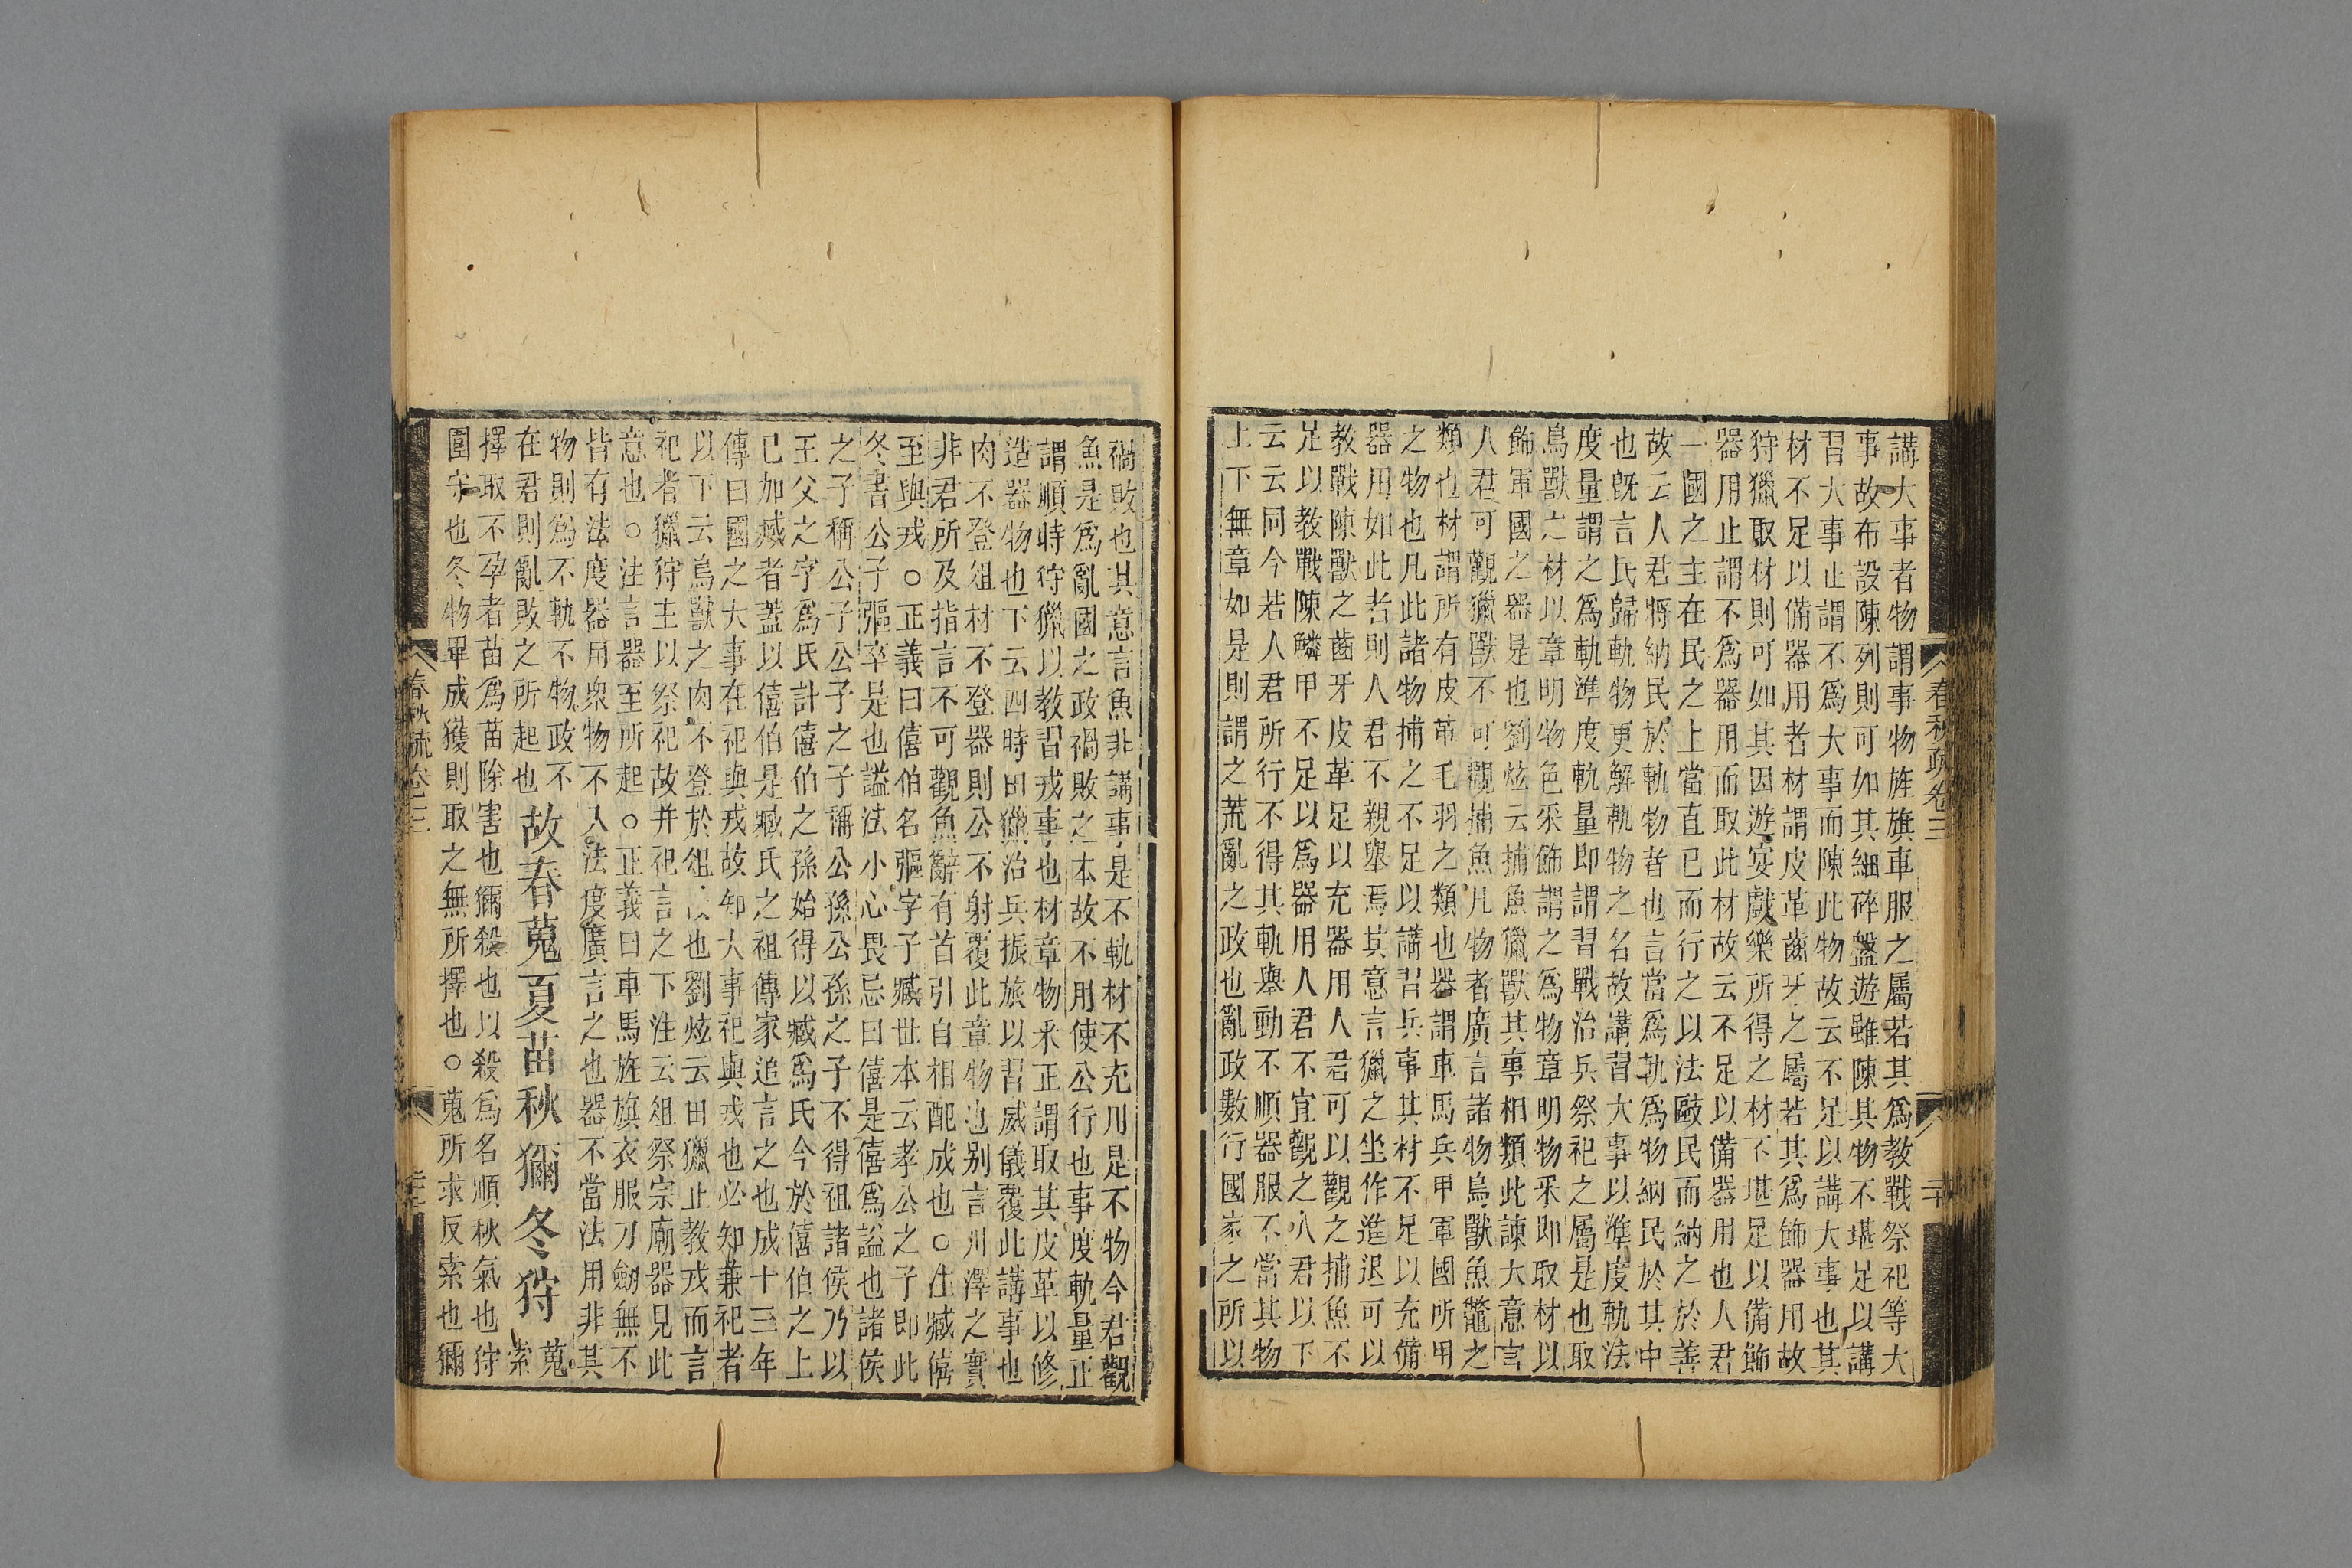 講大事者物謂事物旌旗車服之屬若其爲教戰祭祀等大
事故布設陳列則可如其細碎盤遊雖陳其物不堪足以講
習大事止謂不爲大事而陳此物故云不足以講大事也其
材不足以備器用者材謂皮革齒牙之屬若其爲飾器用故
狩獵取材則可如其因遊宴戲樂所得之材不堪足以備飾
器用止謂不爲器用而取此材故云不足以備器用也人君
一國之主在民之上當直已而行之以法敺民而納之於善
故云人君將納民於軌物者也言當爲軌爲物納民於其中
也既言民歸軌物更解軌物之名故講習大事以準度軌法
度量謂之爲軌準度軌量即謂習戰治兵祭祀之屬是也取
鳥獸之材以章明物色采飾謂之爲物章明物釆即取材以
飾軍國之器是也劉炫云捕魚獵獸其事相類此諫大意言
人君可觀獵獸不可觀捕魚凡物者廣言諸物鳥獸魚鼈之
類也材謂所有皮革毛羽之類也器謂車馬兵甲軍國所用
之物也凡此諸物捕之不足以講習兵事其材不足以充備
器用如此者則人君不親舉焉其意言獵之坐作進退可以
教戰陳獸之齒牙皮革足以充器用人君可以觀之捕魚不
足以教戰陳鱗甲不足以爲器用人君不宜觀之八君以下
云云同今若人君所行不得其軌舉動不順器服不當其物
上下無章如是則謂之荒亂之政也亂政數行國家之所以
春秋疏卷三
禍敗也其意言魚非講事是不軌材不充用是不物今君觀
魚是爲亂國之政禍敗之本故不用使公行也事度軌量正
謂順時狩獵以教習戎事也材章物釆正謂取其皮革以修
造器物也下云四時田獵治兵振旅以習威儀覆此講事也
肉不登俎材不登器則公不射覆此章物也別言川澤之實
非君所及指言不可觀魚辭有首引自相配成也○注臧僖
至與戎○正義曰僖伯名彄字子臧世本云孝公之子即此
冬書公子彄卒是也謚法小心畏忌曰僖是僖爲謚也諸侯
之子稱公子公子之子稱公孫公孫之子不得祖諸侯乃以
王父之字爲氏計僖伯之孫始得以臧爲氏今於僖伯之上
已加臧者蓋以僖伯是臧氏之祖傳家追言之也成十三年
傳曰國之大事在祀與戎故知大事祀與戎也必知兼祀者
以下云鳥獸之肉不登於俎以也劉炫云田獵止教戎而言
祀者獵狩主以祭祀故并祀言之下注云俎祭宗廟器見此
意也○注言器至所起○正義曰車馬旌旗衣服刀劒無不
皆有法度器用衆物不入法度廣言之也器不當法用非其
物則爲不軌不物政不
在君則亂敗之所起也故春蒐夏苗秋獮冬狩蒐索
擇取不孕者苗爲苗除害也獮殺也以殺爲名順秋氣也狩
圍守也冬物畢成獲則取之無所擇也○蒐所求反索也獮
春秋疏卷三